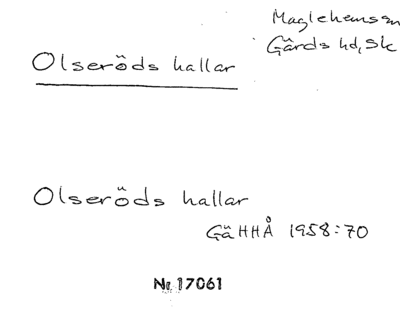 Maglehems sn
Gärds hd, Sk
Olseröds hallar
Olseröds hallar
GäHHÅ 1958:70
Nr 17061